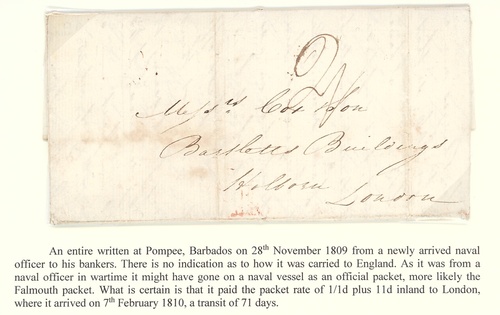 2/
Messrs Cox & Son
Bartletts Buildings
Holborn
London
An entire written at Pompee, Barbados on 28th November 1809 from a newly arrived naval
officer to his bankers. There is no indication as to how it was carried to England. As it was from a
naval officer in wartime it might have gone on a naval vessel as an official packet, more likely the
Falmouth packet. What is certain is that it paid the packet rate of 1/1d plus 11d inland to London,
where it arrived on 7th February 1810, a transit of 71 days.